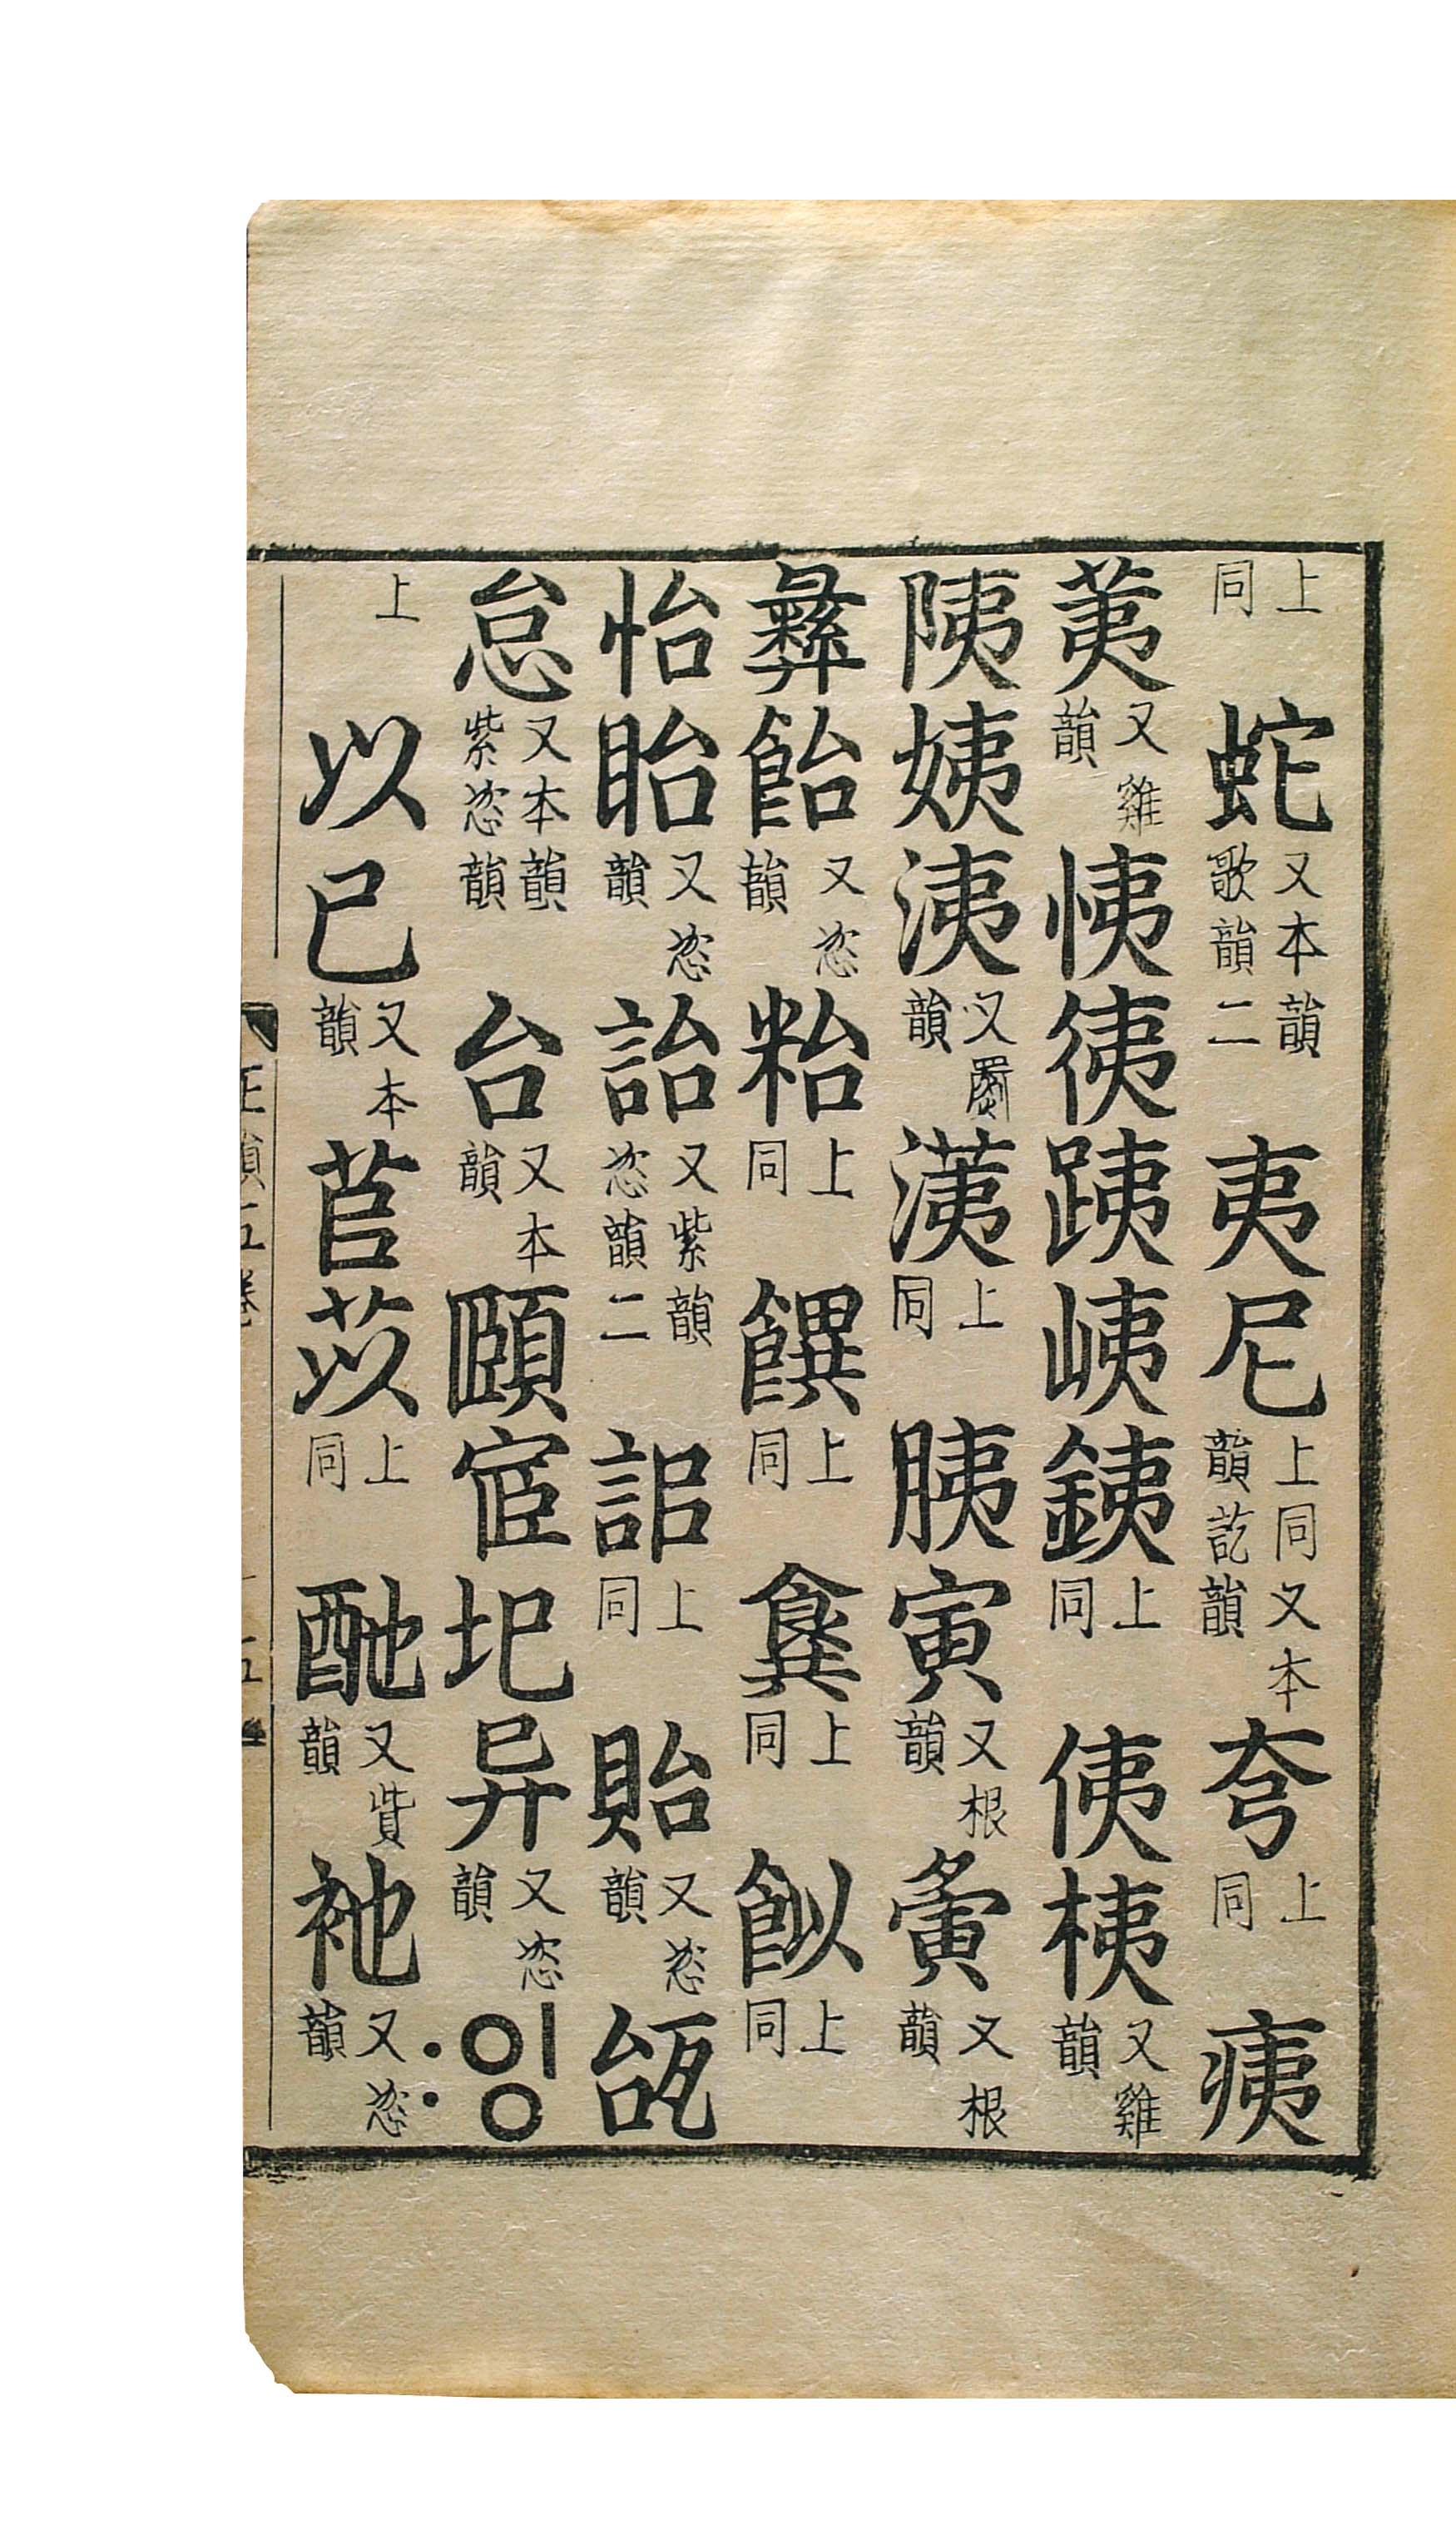 上同蛇又本韻歌韻二夷尼上同又本韻訖韻上同痍
荑又雞韻恞跠峓銕上同侇桋又雞韻
姨洟又罽韻上同胰寅又根韻夤又根韻
彝飴又恣韻上同上同上同上同
怡眙又恣韻詒又紫韻恣韻二上同貽又恣韻瓵
怠又本韻紫恣韻台又本韻頤宧圯异又恣韻:잉
上以已又本韻苢苡上同酏又貲韻袘又恣韻